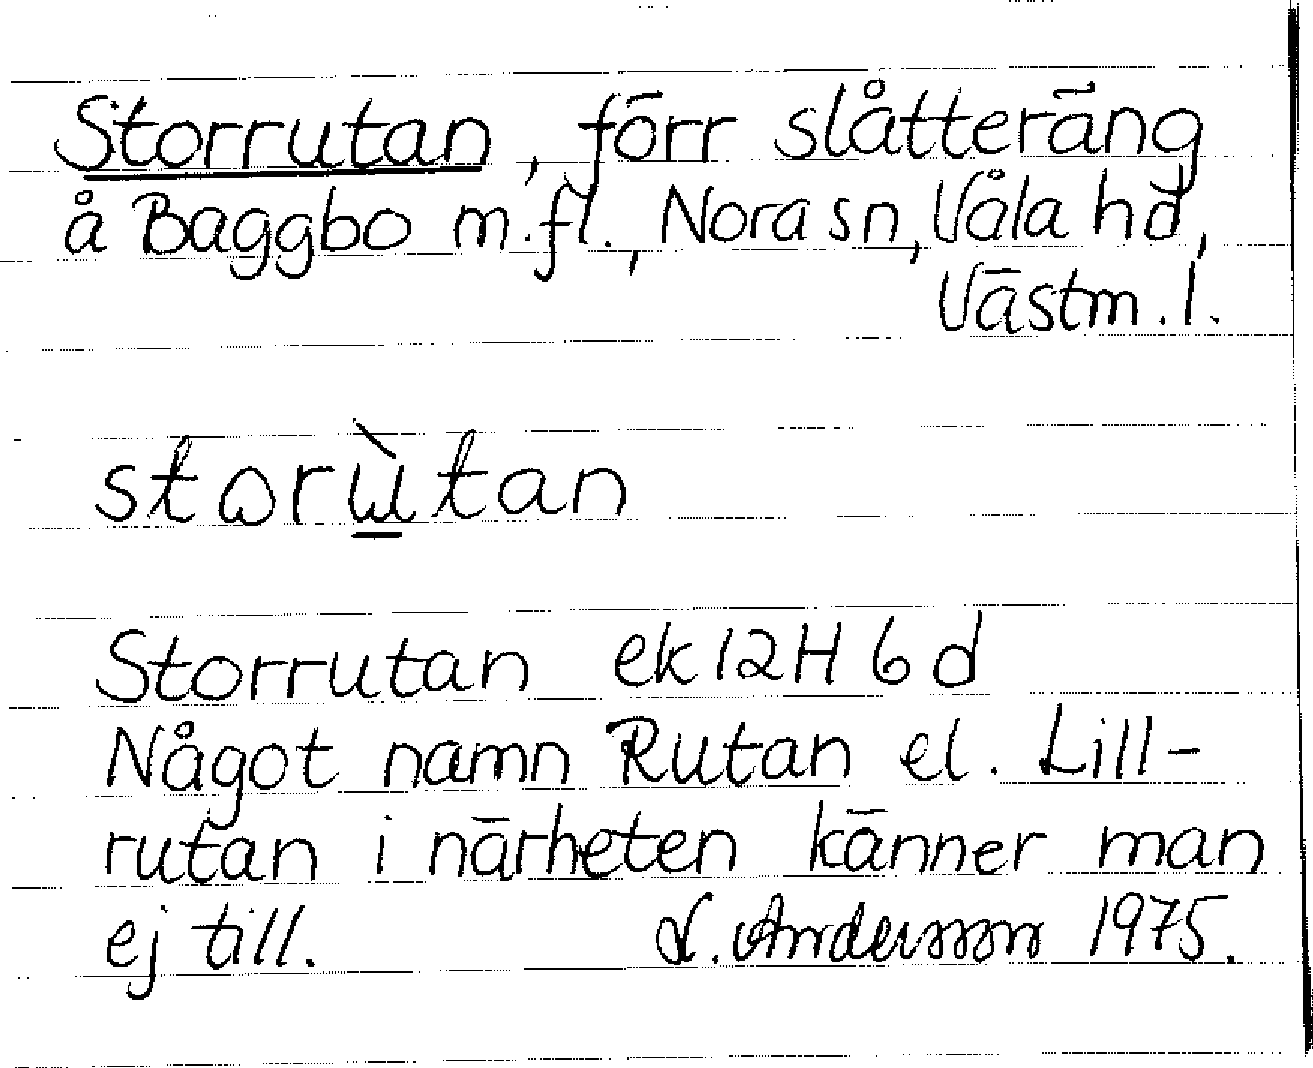 Storrutan, förr slåtteräng
å Baggbo m.fl., Nora sn, Våla hd,
Västm. l.
storù̲tan
Storrutan ek 12H 6d
Något namn Rutan el. Lill-
rutan i närheten känner man
ej till. L. Andersson 1975.